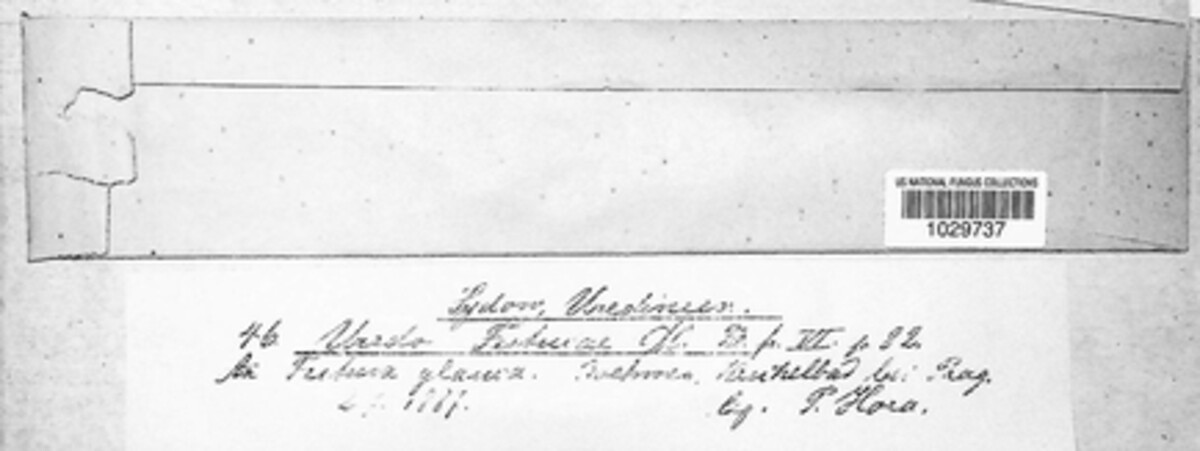 US NATIONAL FUNGUS COLLECTIONS
1029737
Sydow, Uredineen.
46. Uredo Festucae DC. VI. p. 82.
An Festuca glauca. Boehmen, Kuchelbad bei Prag.
1887. leg. P. Hora.